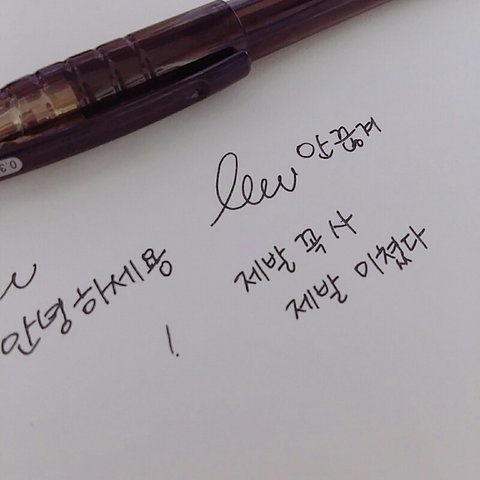 0.3
안끊겨
안녕하세용
!
제발 꼭 사
제발 미쳤다